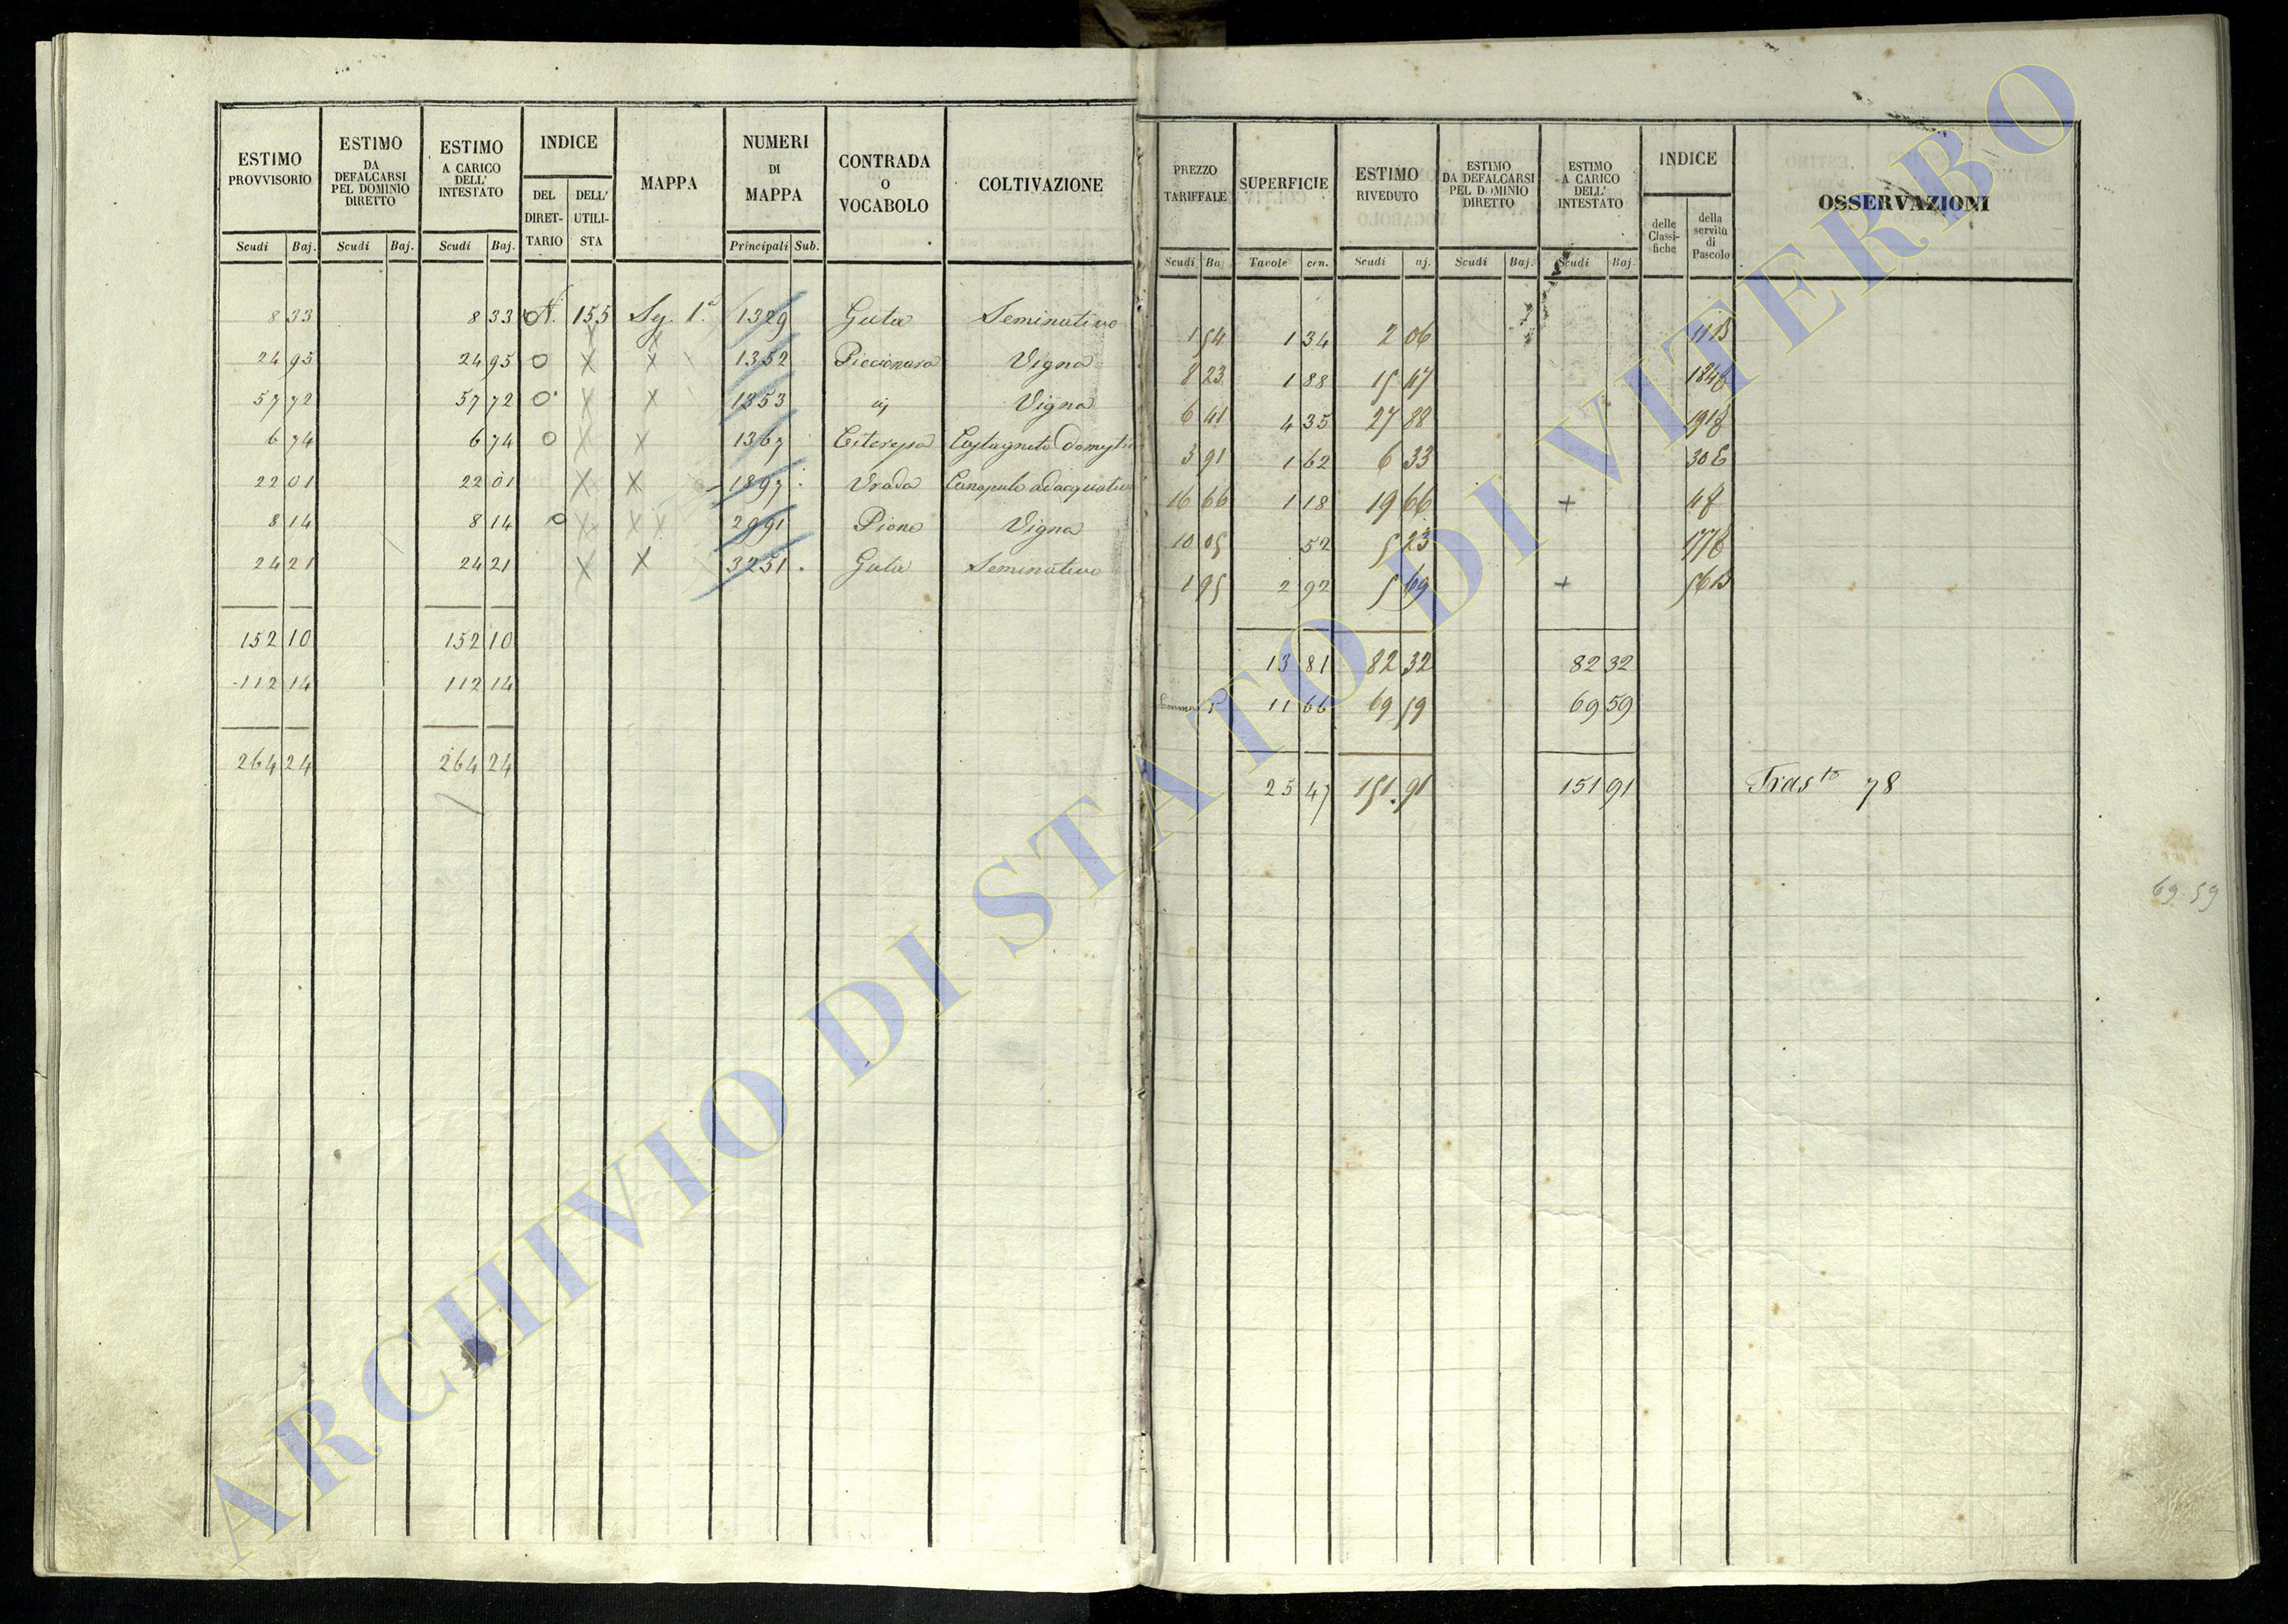 ESTIMO PROVVISORIO | ESTIMO DA DEFALCARSI PEL DOMINIO DIRETTO | ESTIMO A CARICO DELL' INTESTATO | INDICE | MAPPA | NUMERI DI MAPPA | CONTRADA O VOCABOLO | COLTIVAZIONE | PREZZO TARIFFALE | SUPERFICIE | ESTIMO RIVEDUTO | ESTIMO DA DEFALCARSI PEL DOMINIO DIRETTO | ESTIMO A CARICO DELL' INTESTATO | INDICE | OSSERVAZIONI
DEL DIRET- TARIO | DELL' UTILI- STA | delle Classi- fiche | della servitù di Pascolo
Scudi | Baj. | Scudi | Baj. | Scudi | Baj. | Principali | Sub. | Scudi | Ba | Tavole | cen. | Scudi | aj. | Scudi | Baj. | Scudi | Baj.
8 33 | 8 33 | A. | 155 | 1329 | Guta | Seminativo | 1 54 | 1 34 | 2 06 | 11 B
24 95 | 24 95 | O | X | X | 1352 | Piccionara | Vigna | 8 23 | 1 88 | 15 47
57 72 | 57 72 | O | X | X | 1353 | Vigna | 6 41 | 4 35 | 27 88
6 74 | 6 74 | O | X | X | 1367 | Castagneto Domestico | 3 91 | 1 62 | 6 33
22 01 | 22 01 | X | X | 1897 | Canapulo adacquativo | 16 66 | 1 18 | 19 66 | +
8 14 | 8 14 | O | X | X X | 2991 | Pione | Vigna | 10 05 | 52 | 5 23
24 21 | 24 21 | X | X | 3251 | Guta | Seminativo | 1 95 | 2 92 | 5 69 | + | 56 B
152 10 | 152 10 | 13 81 | 82 32 | 82 32
112 14 | 112 14 | 11 66 | 69 59 | 69 59
264 24 | 264 24 | 25 47 | 151 91 | 151 91 | Trasto 78
69.59
ARCHIVIO DI STATO DI VITERBO